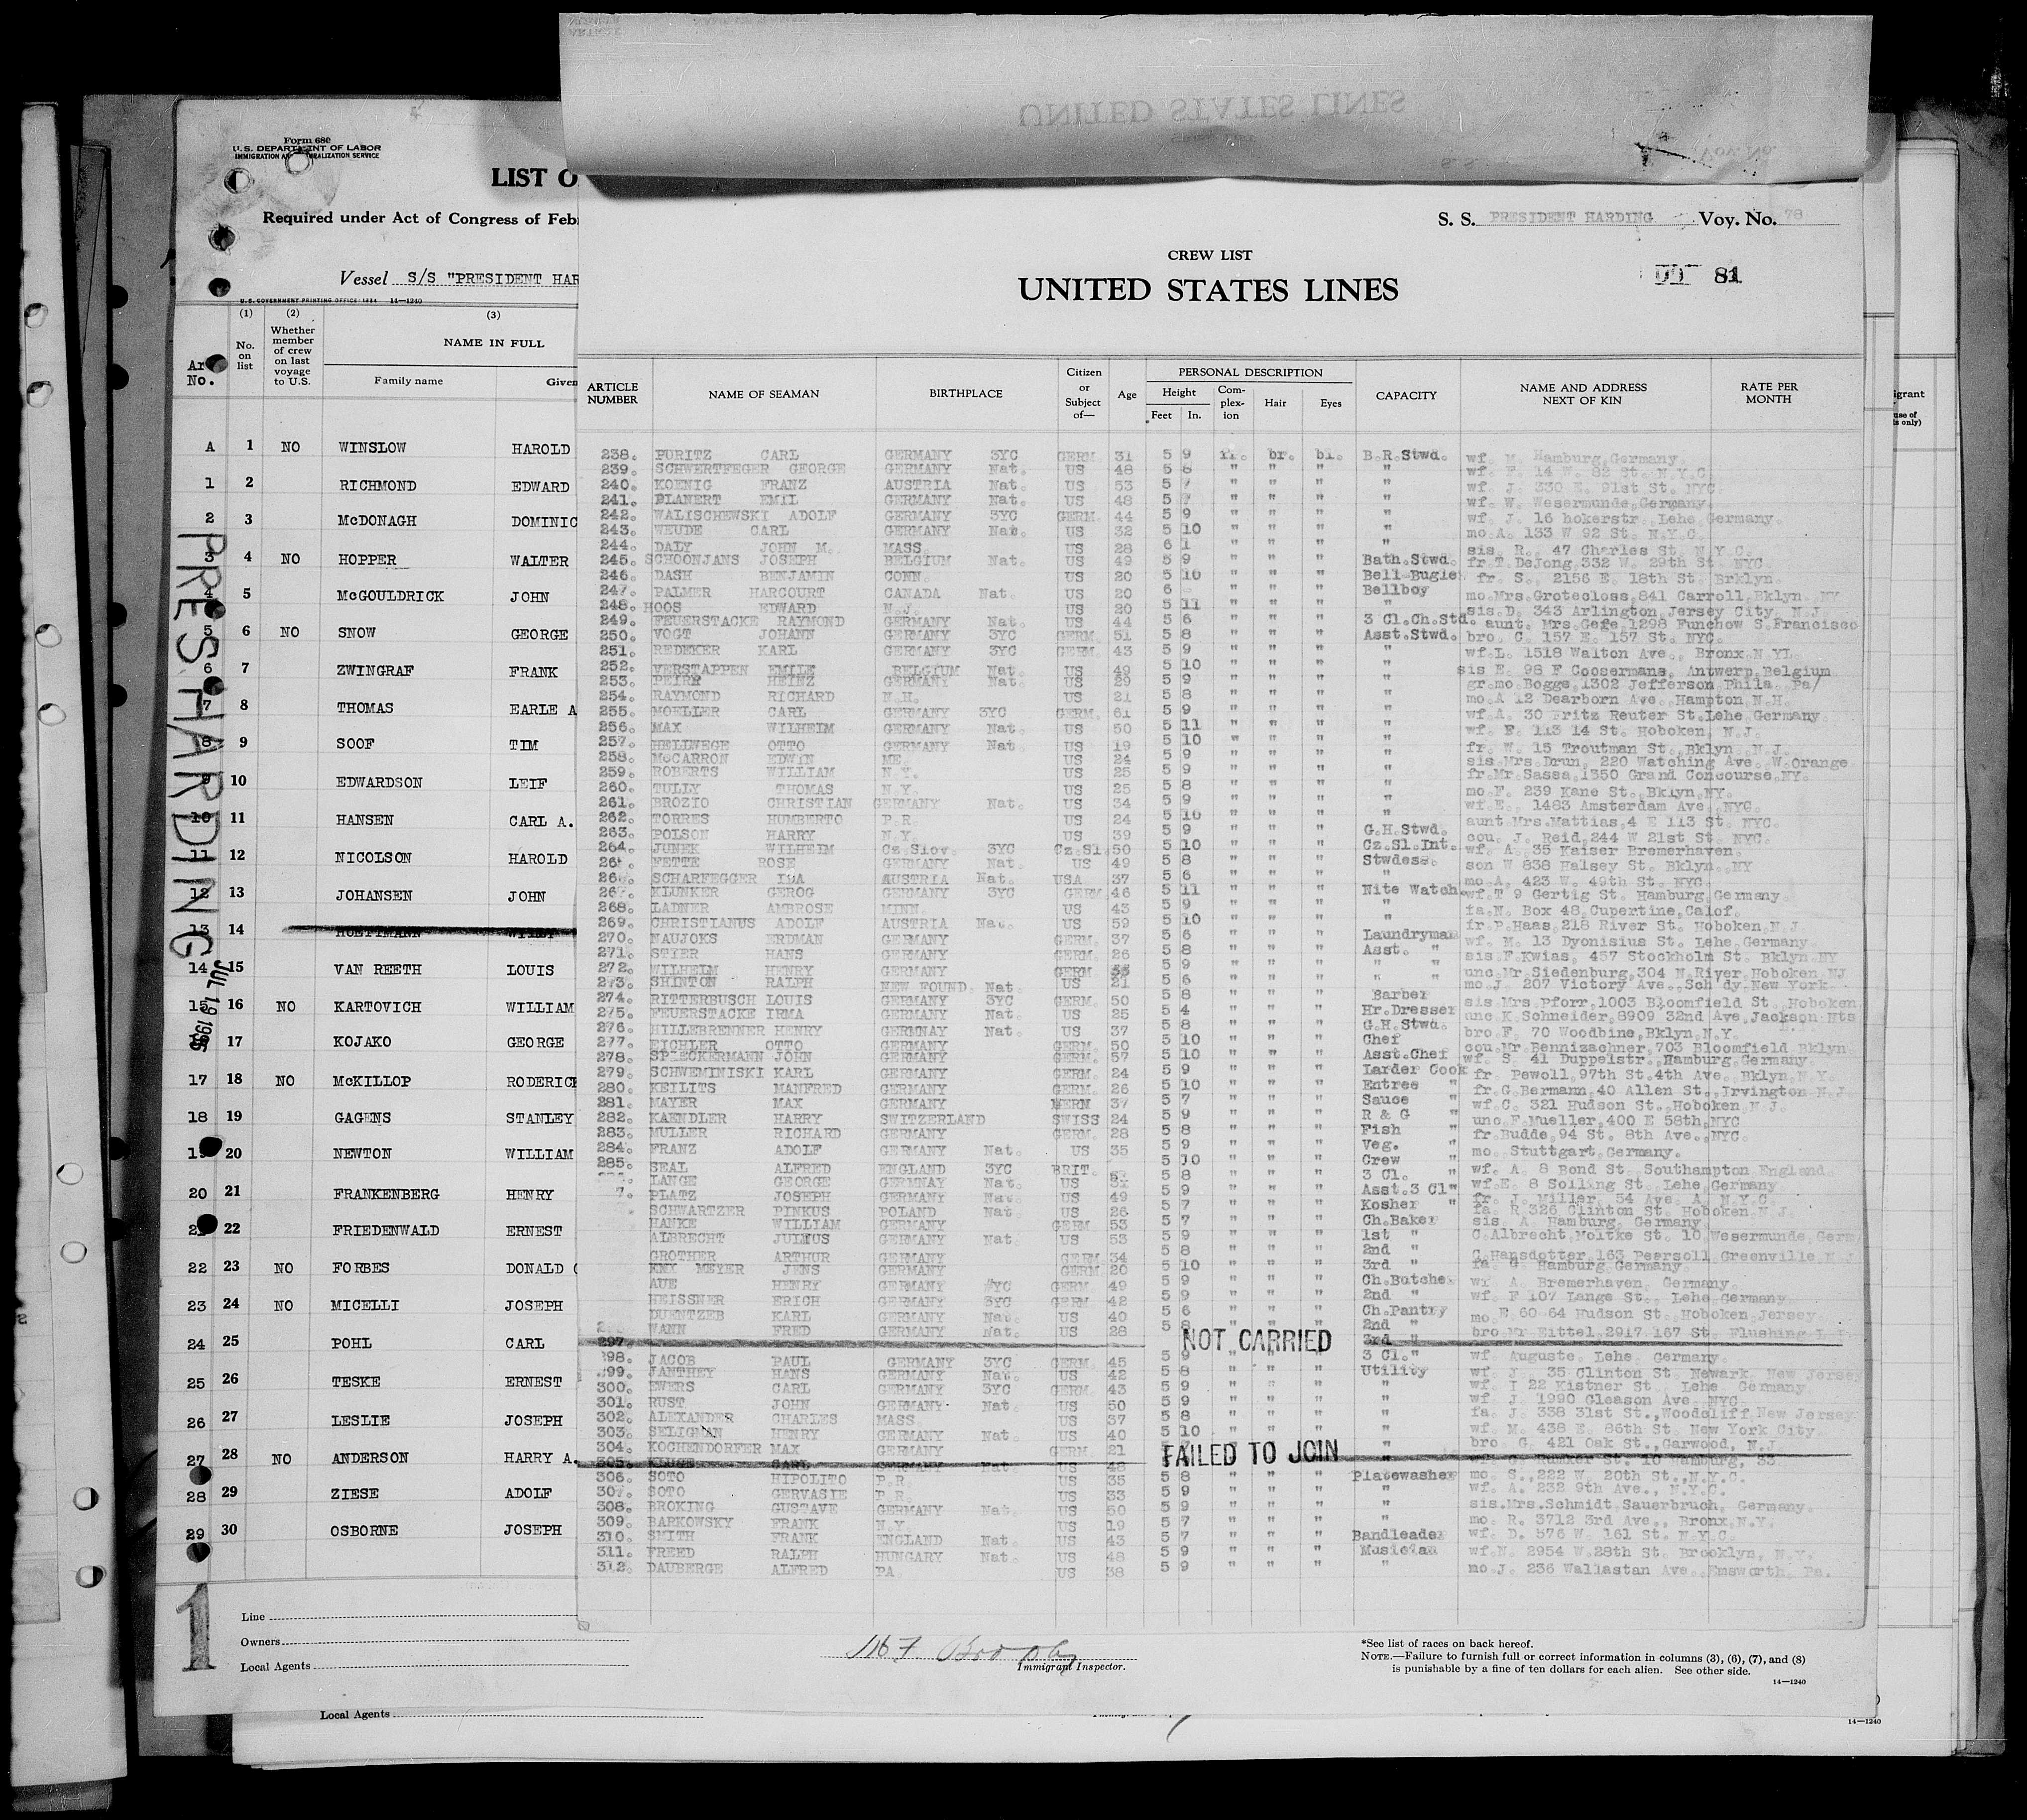 Form 680
U.S. DEPARTMENT OF LABOR
IMMIGRATION AND NATURALIZATION SERVICE
LIST O
Required under Act of Congress of Feb
Vessel S/S "PRESIDENT HAR
U.S. GOVERNMENT PRINTING OFFICE: 1934 14—1240
(1) (2) (3)
Ar No. No. on list Whether member of crew on last voyage to U.S. NAME IN FULL
Family name Given
A 1 NO WINSLOW HAROLD
1 2 RICHMOND EDWARD
2 3 McDONAGH DOMINIC
3 4 NO HOPPER WALTER
4 5 McGOULDRICK JOHN
5 6 NO SNOW GEORGE
6 7 ZWINGRAF FRANK
7 8 THOMAS EARLE A
8 9 SOOF TIM
9 10 EDWARDSON LEIF
10 11 HANSEN CARL A.
11 12 NICOLSON HAROLD
12 13 JOHANSEN JOHN
13 14
14 15 VAN REETH LOUIS
15 16 NO KARTOVICH WILLIAM
17 KOJAKO GEORGE
17 18 NO McKILLOP RODERICK
18 19 GAGENS STANLEY
19 20 NEWTON WILLIAM
20 21 FRANKENBERG HENRY
21 22 FRIEDENWALD ERNEST
22 23 NO FORBES DONALD
23 24 NO MICELLI JOSEPH
24 25 POHL CARL
25 26 TESKE ERNEST
26 27 LESLIE JOSEPH
27 28 NO ANDERSON HARRY A.
28 29 ZIESE ADOLF
29 30 OSBORNE JOSEPH
PRES. HARDING
JUL 19
1
Line
Owners
Local Agents
Local Agents
UNITED STATES LINES
S. S. PRESIDENT HARDING Voy. No. 78
CREW LIST
UNITED STATES LINES
81
ARTICLE NUMBER NAME OF SEAMAN BIRTHPLACE Citizen or Subject of— Age PERSONAL DESCRIPTION Height Feet In. Complexion Hair Eyes CAPACITY NAME AND ADDRESS NEXT OF KIN RATE PER MONTH
238. PURITZ CARL GERMANY 3YC GERM. 31 5 9 br. bl. B.R.Stwd. wf. M. Hamburg, Germany.
239. SCHWERTFEGER GEORGE GERMANY Nat. US 48 5 8 " " " " wf. F. 14 W. 82 St. N.Y.C.
240. KOENIG FRANZ AUSTRIA Nat. US 53 5 7 " " " " wf. J. 330 E. 91st St. NYC.
241. PLANERT EMIL GERMANY Nat. US 48 5 7 " " " " wf. W. Wesermunde, Germany.
242. WALISCHEWSKI ADOLF GERMANY 3YC GERM. 44 5 9 " " " " wf. J. 16 hokerstr. Lehe Germany.
243. WEUDE CARL GERMANY Nat. US 32 5 10 " " " " mo.A. 133 W 92 St. N.Y.C.
244. DALY JOHN M. MASS. US 28 6 1 " " " " sis. R. 47 Charles St. N.Y.C.
245. SCHOONJANS JOSEPH BELGIUM Nat. US 49 5 9 " " " Bath.Stwd. fr.T.DeJong, 332 W. 29th St. NYC
246. DASH BENJAMIN CONN. US 20 5 10 " " " Bell-Bugler fr. S. 2156 E. 18th St. Brklyn.
247. PALMER HARCOURT CANADA Nat. US 20 6 " " " Bellboy mo.Mrs.Grotecloss, 841 Carroll, Bklyn. NY
248. HOOS EDWARD N.J. US 20 5 11 " " " " sis.D. 343 Arlington, Jersey City, N.J.
249. FEUERSTACKE RAYMOND GERMANY Nat. US 44 5 6 " " " 3 Cl.Ch.Std. aunt. Mrs.Gefe, 1298 Funchow S.Francisco
250. VOGT JOHANN GERMANY 3YC GERM. 51 5 8 " " " Asst.Stwd. bro. C. 157 E. 157 St. NYC.
251. REDEKER KARL GERMANY 3YC GERM. 43 5 9 " " " " wf.L. 1518 Walton Ave., Bronx, N.Y.
252. VERSTAPPEN EMILE BELGIUM Nat. US 49 5 10 " " " " sis E. 98 F Coosermans, Antwerp, Belgium
253. HEINZ GERMANY Nat. US 29 5 9 " " " " gr.mo.Boggs, 1302 Jefferson Phila. Pa/
254. RAYMOND RICHARD N.H. US 21 5 8 " " " " mo.A 12 Dearborn Ave. Hampton, N.H.
255. MOELLER CARL GERMANY 3YC GERM. 61 5 9 " " " " wf.A. 30 Fritz Reuter St. Lehe Germany
256. MAX WILHEIM GERMANY Nat. US 50 5 11 " " " " wf. F. 113 14 St. Hoboken, N.J.
257. HELLWEGE OTTO GERMANY Nat. US 19 5 10 " " " " fr. W. 15 Troutman St. Bklyn. N.J.
258. McCARRON EDWIN ME. US 24 5 9 " " " " sis.Mrs.Drun, 220 Watching Ave. W.Orange
259. ROBERTS WILLIAM N.Y. US 25 5 9 " " " " fr.Mr.Sassa, 1350 Grand Concourse, NY.
260. TULLY THOMAS N.Y. US 25 5 8 " " " " mo.F. 239 Kane St. Bklyn, NY.
261. BROZIO CHRISTIAN GERMANY Nat. US 34 5 9 " " " " wf.E. 1483 Amsterdam Ave. NYC.
262. TORRES HUMBERTO P.R US 24 5 10 " " " " aunt Mrs.Mattias, 4 E 113 St. NYC.
263. POLSON HARRY N.Y. US 39 5 9 " " " G.H.Stwd. cou. J. Reid, 244 W 21st St. NYC.
264. JUNEK WILHEIM Cz.Slov. 3YC Cz.Sl. 50 5 10 " " " Cz.Sl.Int. wf. A. 35 Kaiser Bremerhaven.
26 . FETTE ROSE GERMANY Nat. US 49 5 8 " " " Stwdess. son W 838 Halsey St. Bklyn. NY
266. SCHARFEGGER IDA AUSTRIA Nat. USA 37 5 6 " " " " mo.A. 423 W. 49th St. NYC.
267. KLUNKER GEROG GERMANY 3YC GERM. 46 5 11 " " " Nite Watch. wf.T 9 Gertig St. Hamburg, Germany.
268. LADNER AMBROSE MINN. US 43 5 9 " " " " fa.N. Box 48, Cupertine, Calof.
269. CHRISTIANUS ADOLF AUSTRIA Nat. US 59 5 10 " " " " fr.P.Haas, 218 River St. Hoboken, N.J.
270. NAUJOKS ERDMAN GERMANY GERM. 37 5 6 " " " Laundryman wf. M. 13 Dyonisius St. Lehe, Germany
271. STIER HANS GERMANY GERM. 26 5 8 " " " Asst. " sis.F.Kwias, 457 Stockholm St. Bklyn. NY
272. WILHEIM HENRY GERMANY GERM 5 9 " " " " " unc.Mr.Siedenburg, 304 N.River, Hoboken, NJ
273. SHINTON RALPH NEW FOUND. Nat. US 21 5 6 " " " " " mo.J. 207 Victory Ave., Sch'dy, New York.
274. RITTERBUSCH LOUIS GERMANY 3YC GERM. 50 5 8 " " " Barber sis.Mrs.Pforr, 1003 Bloomfield St. Hoboken.
275. FEUERSTACKE IRMA GERMANY Nat. US 25 5 4 " " " Hr.Dresser unc.K.Schneider, 8909 32nd Ave, Jackson Hts
276. HILLEBRENNER HENRY GERMNAY Nat. US 37 5 8 " " " G.H.Stwd. bro.F. 70 Woodbine, Bklyn, N.Y.
277. EICHLER OTTO GERMANY GERM. 50 5 10 " " " Chef cou.Mr.Bennizachner, 703 Bloomfield Bklyn.
278. SPIECKERMANN JOHN GERMANY GERM. 57 5 10 " " " Asst.Chef wf. S. 41 Duppelstr., Hamburg, Germany.
279. SCHWEMINISKI KARL GERMANY GERM. 24 5 9 " " " Larder Cook fr. Pewoll, 97th St. 4th Ave., Bklyn, N.Y.
280. KEILITS MANFRED GERMANY GERM. 26 5 10 " " " Entree " fr.G.Bermann, 40 Allen St., Irvington N.J.
281. MAYER MAX GERMANY GERM 37 5 7 " " " Sauce " wf.C. 321 Hudson St., Hoboken, N.J.
282. KAENDLER HARRY SWITZERLAND SWISS 24 5 9 " " " R & G " unc.F.Mueller, 400 E 58th, NYC
283. MULLER RICHARD GERMANY GERM. 28 5 8 " " " Fish " fr.Budde, 94 St. 8th Ave., NYC.
284. FRANZ ADOLF GERMANY Nat. US 35 5 9 " " " Veg. " mo. Stuttgart, Germany.
285. SEAL ALFRED ENGLAND 3YC BRIT. 5 10 " " " Crew " wf. A. 8 Bond St. Southampton England.
LANGE GEORGE GERMNAY Nat. US 5 8 " " " 3 Cl. " wf.E. 8 Solling St. Lehe, Germany
7. PLATZ JOSEPH GERMANY Nat. US 49 5 9 " " " Asst.3 Cl" fr. J. Miller, 54 Ave. A, N.Y.C.
SCHWARTZER PINKUS POLAND Nat. US 26 5 7 " " " Kosher " fa. R 326 Clinton St. Hoboken, N.J.
HANKE WILLIAM GERMANY GERM 53 5 7 " " " Ch.Baker sis. A. Hamburg, Germany.
ALBRECHT JULIUS GERMANY Nat. US 53 5 9 " " " 1st " C.Albrecht, Moltke St. 10, Wesermunde, Germ.
GROTHER ARTHUR GERMANY GERM 34 5 8 " " " 2nd " C.Hansdotter, 163 Pearsoll, Greenville N.J
KNY MEYER JENS GERMANY GERM 20 5 10 " " " 3rd " fa. G. Hamburg, Germany.
AUE HENRY GERMANY 3YC GERM 49 5 9 " " " Ch.Butcher wf A. Bremerhaven, Germany.
HEISSNER ERICH GERMANY 3YC GERM 42 5 9 " " " 2nd " wf. F 107 Lange St. Lehe Germany
DUENTZEB KARL GERMANY Nat. US 40 5 6 " " " Ch.Pantry mo.E 60-64 Hudson St. Hoboken, Jersey.
VANN FRED GERMANY Nat. US 28 5 8 2nd " bro Mr Eittel, 2917 167 St. Flushing
297. NOT CARRIED 3rd "
298. JACOB PAUL GERMANY 3YC GERM. 45 5 9 " " " 3 Cl." wf. Auguste. Lehe, Germany.
299. JANTHEY HANS GERMANY Nat. US 42 5 8 " " " Utility wf. J. 35 Clinton St. Newark, New Jersey
300. EWERS CARL GERMANY 3YC GERM. 43 5 9 " " " " wf. I 22 Kistner St. Lehe Germany
301. RUST JOHN GERMANY Nat. US 50 5 9 " " " " wf. J. 1990 Gleason Ave. NYC.
302. ALEXANDER CHARLES MASS. US 37 5 8 " " " " fa. J. 338 31st St., Woodcliff, New Jersey
303. SELIGMAN HENRY GERMANY Nat. US 40 5 10 " " " " wf. M. 438 E. 86th St. New York City.
304. KOCHENDORFER MAX GERMANY GERM. 21 " bro. G. 421 Oak St., Garwood, N.J
305. KLUGE CARL GERMANY Nat. US 48 FAILED TO JOIN
306. SOTO HIPOLITO P.R US 35 5 8 " " " Platewasher mo. S., 222 W. 20th St., N.Y.C.
307. SOTO GERVASIE P.R. US 33 5 9 " " " " wf. A. 232 9th Ave., N.Y.C.
308. BROKING GUSTAVE GERMANY Nat. US 50 5 9 " " " " sis.Mrs.Schmidt Sauerbruch, Germany.
309. BARKOWSKY FRANK N.Y. US 19 5 7 " " " " mo. R. 3712 3rd Ave., Bronx, N.Y.
310. SMITH FRANK ENGLAND Nat. US 43 5 7 " " " Bandleader wf. D. 576 W. 161 St. N.Y.C.
311. FREED RALPH HUNGARY Nat. US 48 5 9 " " " Musician wf.N. 2954 W.28th St. Brooklyn, N.Y.
312. DAUBERGE ALFRED PA. US 38 5 9 " " " " mo.J. 236 Wallastan Ave. Emsworth, Pa.
Immigrant Inspector.
*See list of races on back hereof.
NOTE.—Failure to furnish full or correct information in columns (3), (6), (7), and (8)
is punishable by a fine of ten dollars for each alien. See other side.
14—1240
14—1240